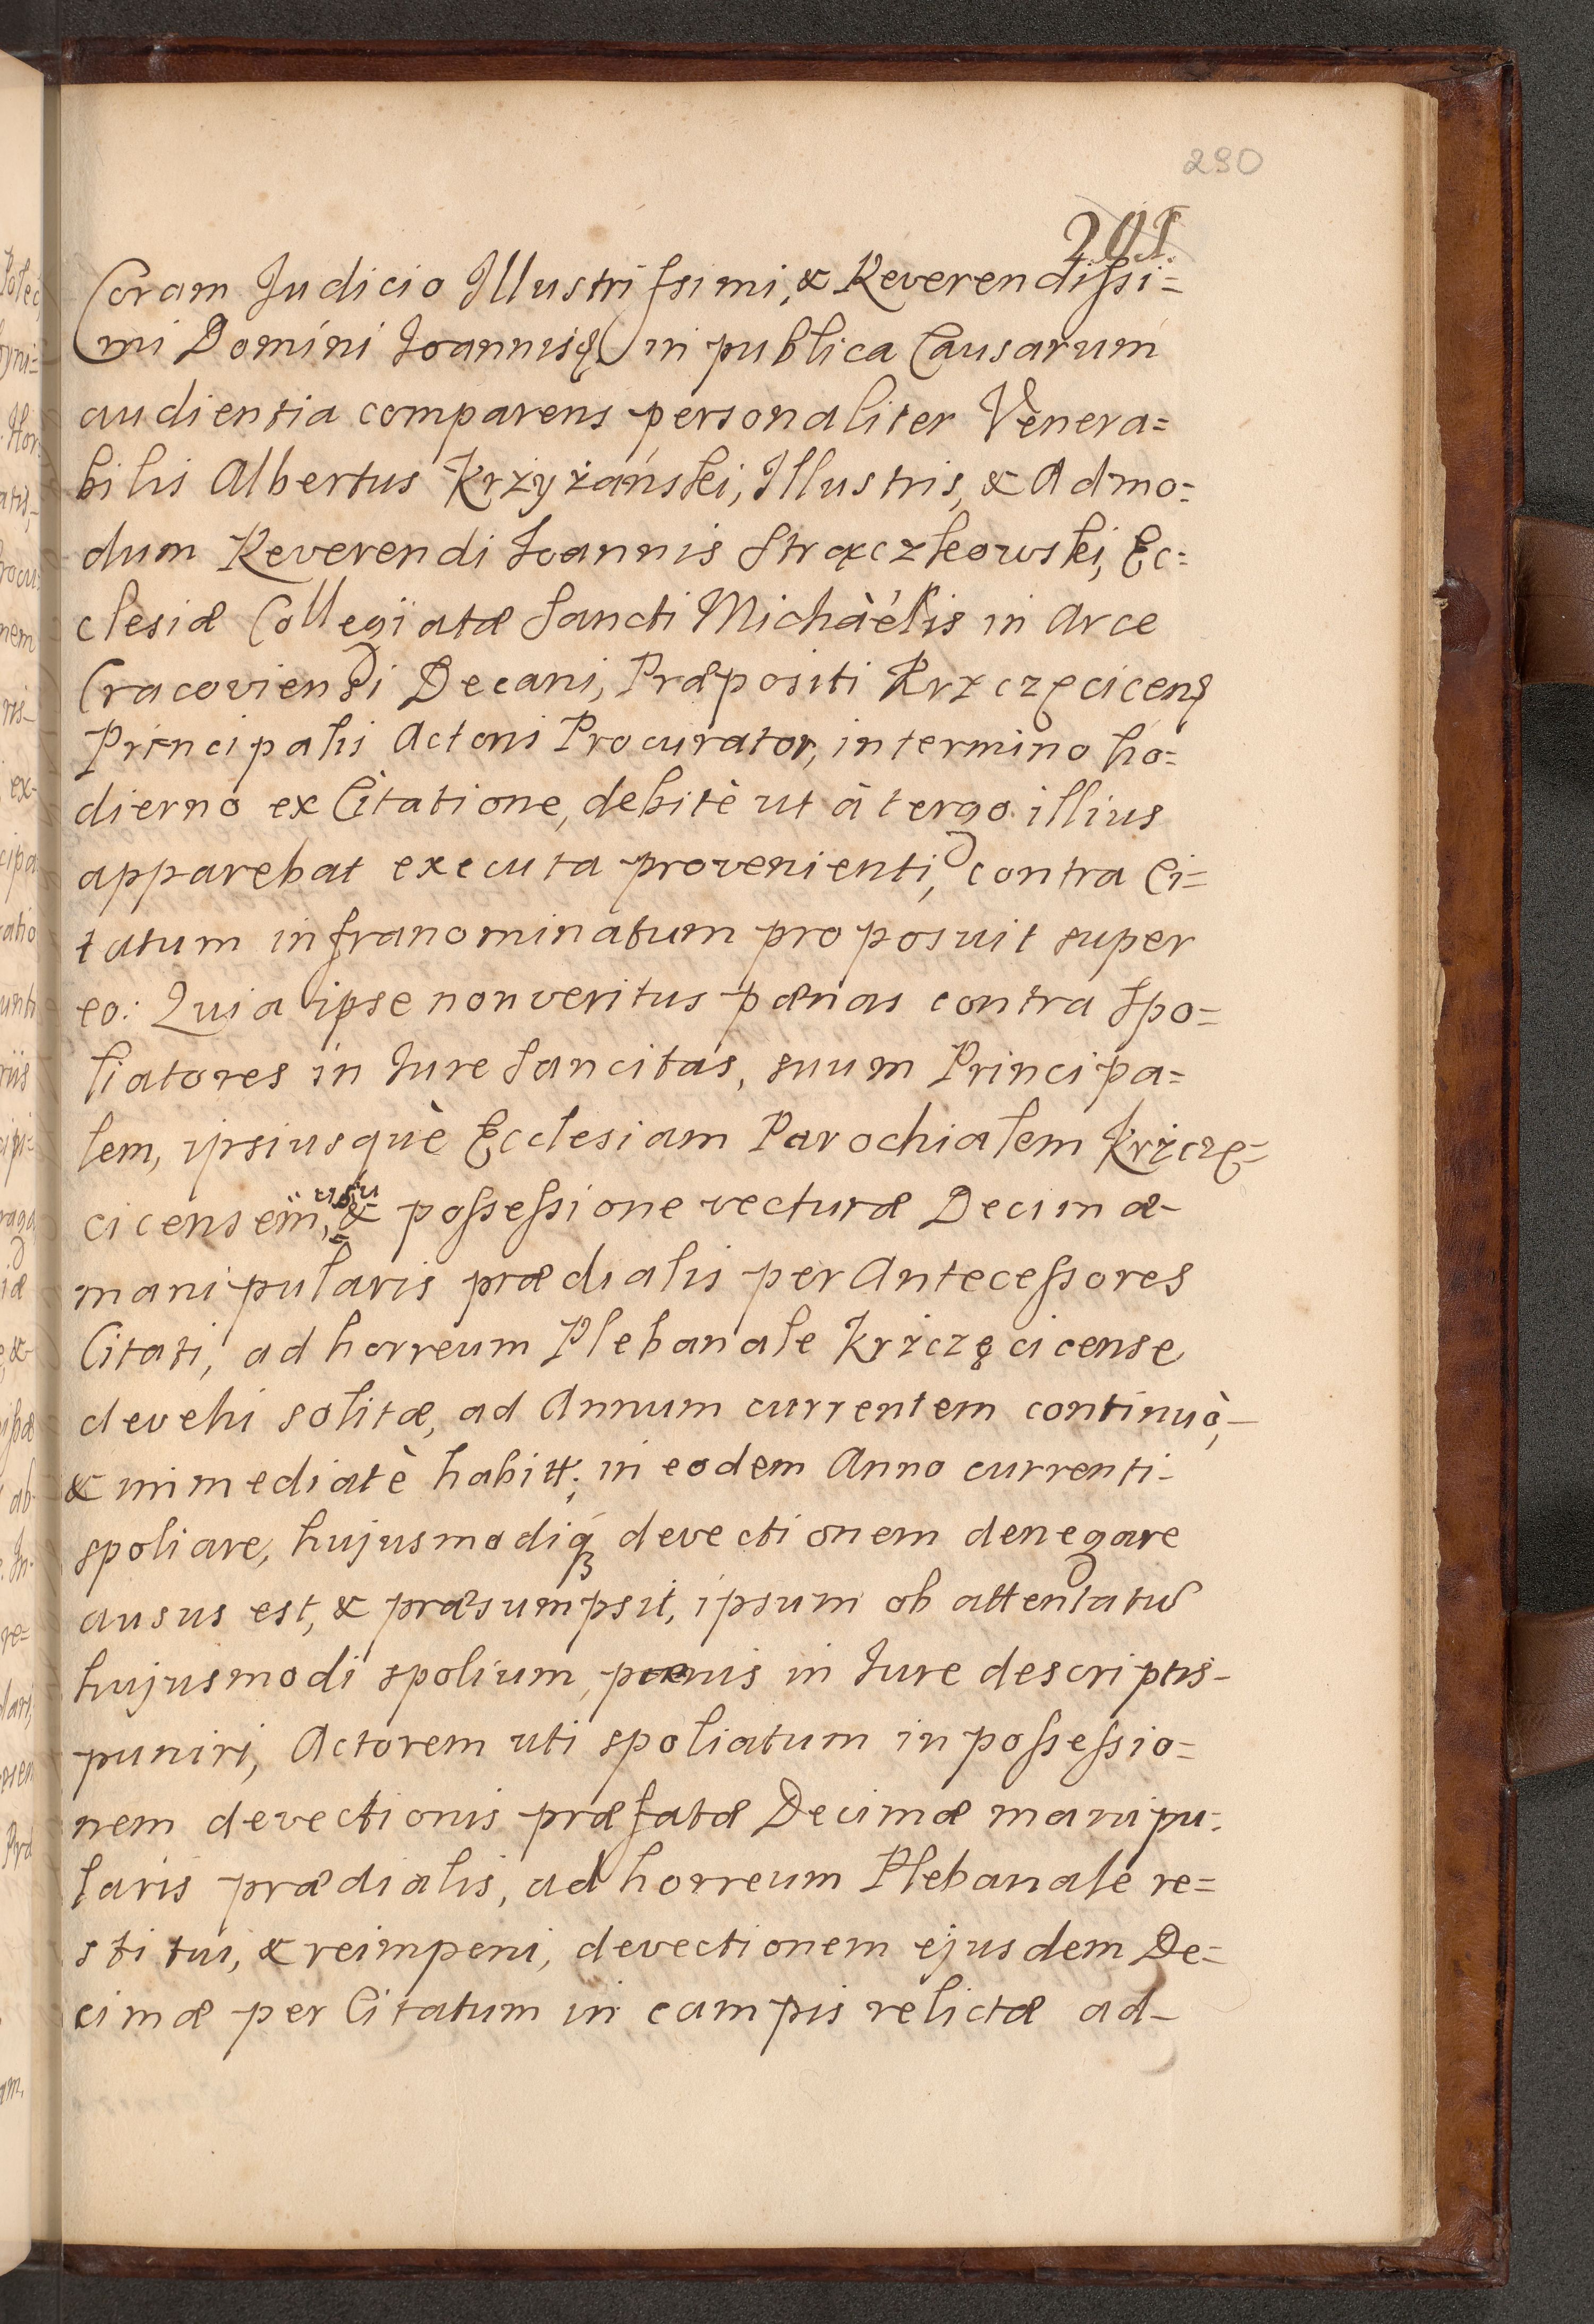 290
291
Coram Judicio Illustrissimi, & Reverendissi=
mi Domini Joannis in publica Causarum
audientia comparens personaliter Venera=
bilis Albertus Krzyżański, Illustris, & Admo=
dum Reverendi Joannis Strączkowski, Ec=
clesiæ Collegiatæ Sancti Michàélis in Arce
Cracoviensi Decani, Præpositi Krzczęcicens
Principalis Actoris Procurator, in termino ho=
dierno ex Citatione, debitè ut à tergo illius
apparebat executa provenienti, contra Ci=
tatum infranominatum proposuit super
eo: Quia ipse non veritus pœnas contra Spo=
liatores in Jure Sancitas, suum Principa=
lem, ipsiusquè Ecclesiam Parochialem Krżczę=
cicensem, usu & possessione vecturæ Decimæ
manipularis prædialis per Antecessores
Citati, ad horreum Plebanale Krżczęcicense
devehi solitæ, ad Annum currentem continuò,
& immediatè habitt; in eodem Anno currenti
spoliare, hujusmodiq3 devectionem denegare
ausus est, & præsumpsit, ipsum ob attentatū
hujusmodi spolium, pœnis in Jure descriptis
puniri, Actorem uti spoliatum in possessio=
nem devectionis præfatæ Decimæ manipu=
laris prædialis, ad horreum Plebanale re=
stitui, & reimponi, devectionem ejusdem De=
cimæ per Citatum in campis relictæ ad